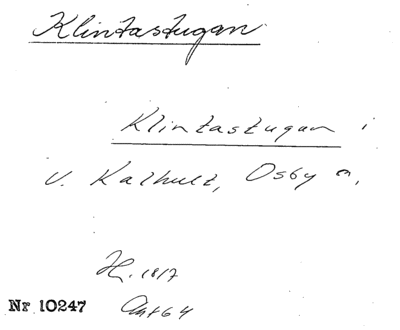 Klintastugan
Klintastugan i
v. Kalhult, Osby
Nr 10247